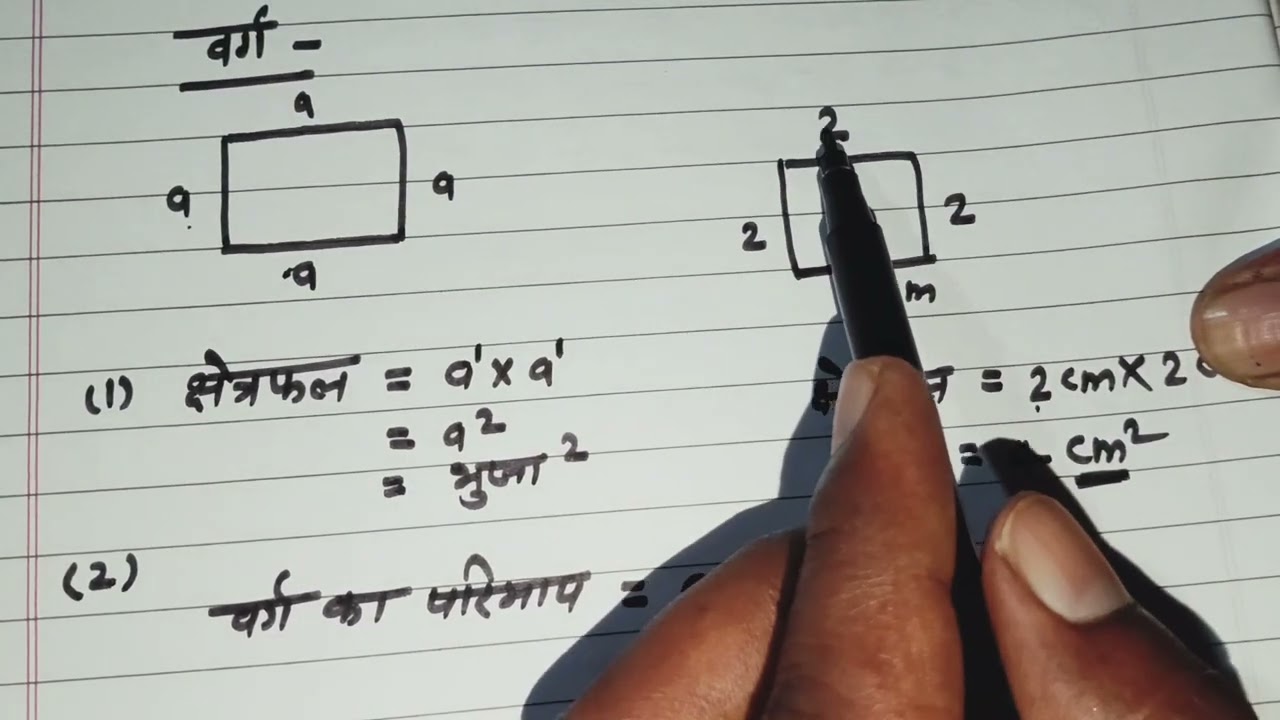 वर्ग -
a
a
a
a
2
2
2
m
(1) क्षेत्रफल = a¹ x a¹
= a²
= भुजा²
= 2 cm X 2
= cm²
(2) वर्ग का परिमाप =